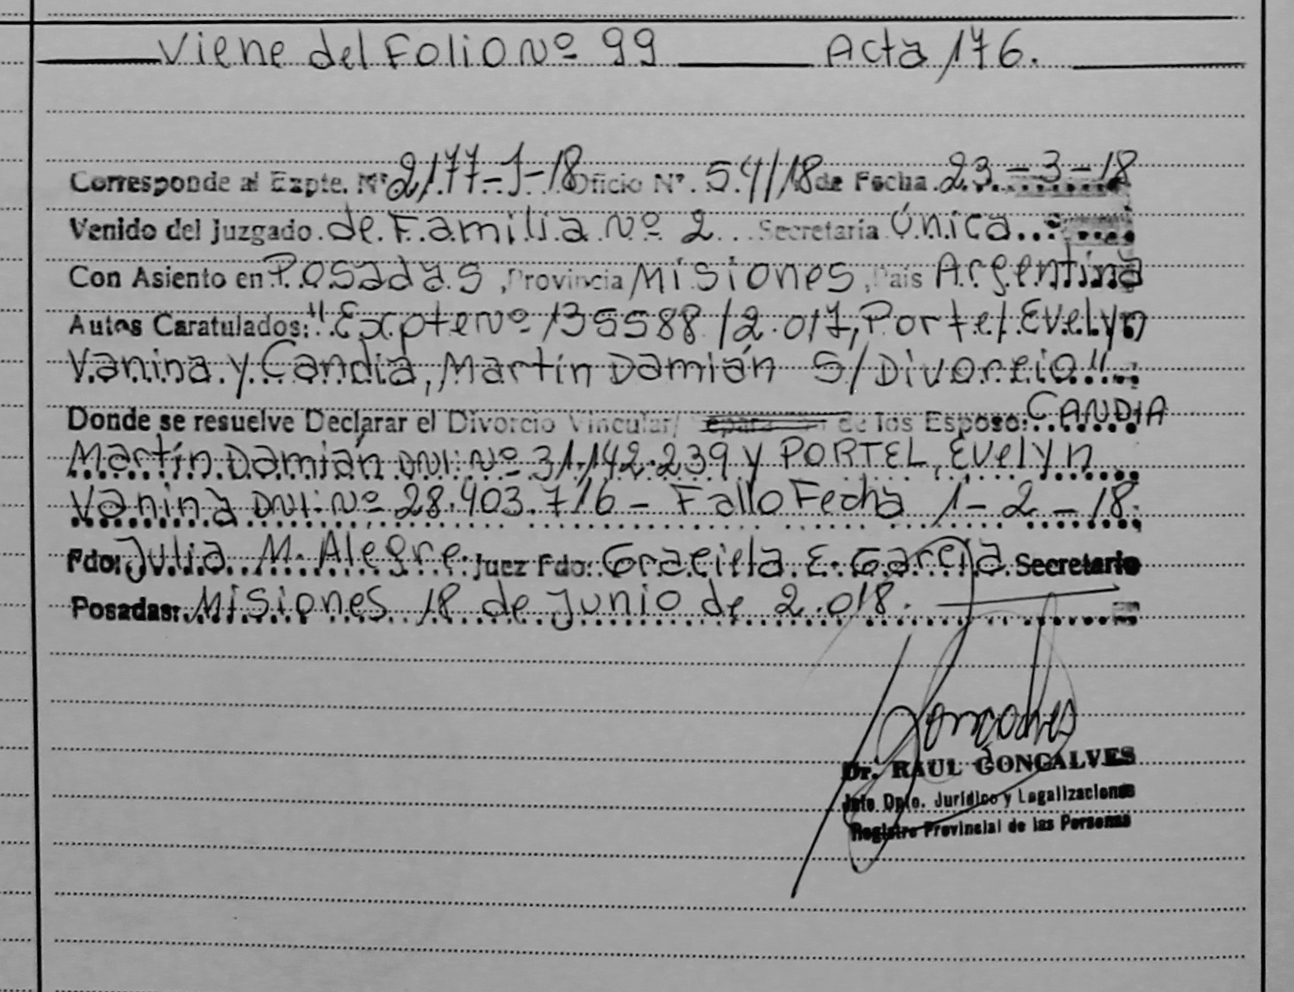 Viene del Folio Nº 99 Acta 176.
Corresponde al Expte. Nº 2177-J-18 Oficio Nº. 54/18 de Fecha 23-3-18
Venido del Juzgado de Familia Nº 2 Secretaria Única
Con Asiento en Posadas, Provincia Misiones, País Argentina
Autos Caratulados: "Expte Nº 135588/2.017, Portel Evelyn
Vanina y Candia, Martín Damián S/Divorcio"
Donde se resuelve Declarar el Divorcio Vincular/ de los Esposo: CANDIA
Martín Damián DNI: Nº 31.142.239 y PORTEL, Evelyn
Vanina DNI: Nº 28.403.716 - Fallo Fecha 1-2-18
Fdo: Julia M. Alegre Juez Fdo: Graciela E. García Secretario
Posadas: Misiones 18 de Junio de 2.018.
Goncalves
Dr. RAUL GONCALVES
Jefe Dpto. Jurídico y Legalizaciones
Registro Provincial de las Personas